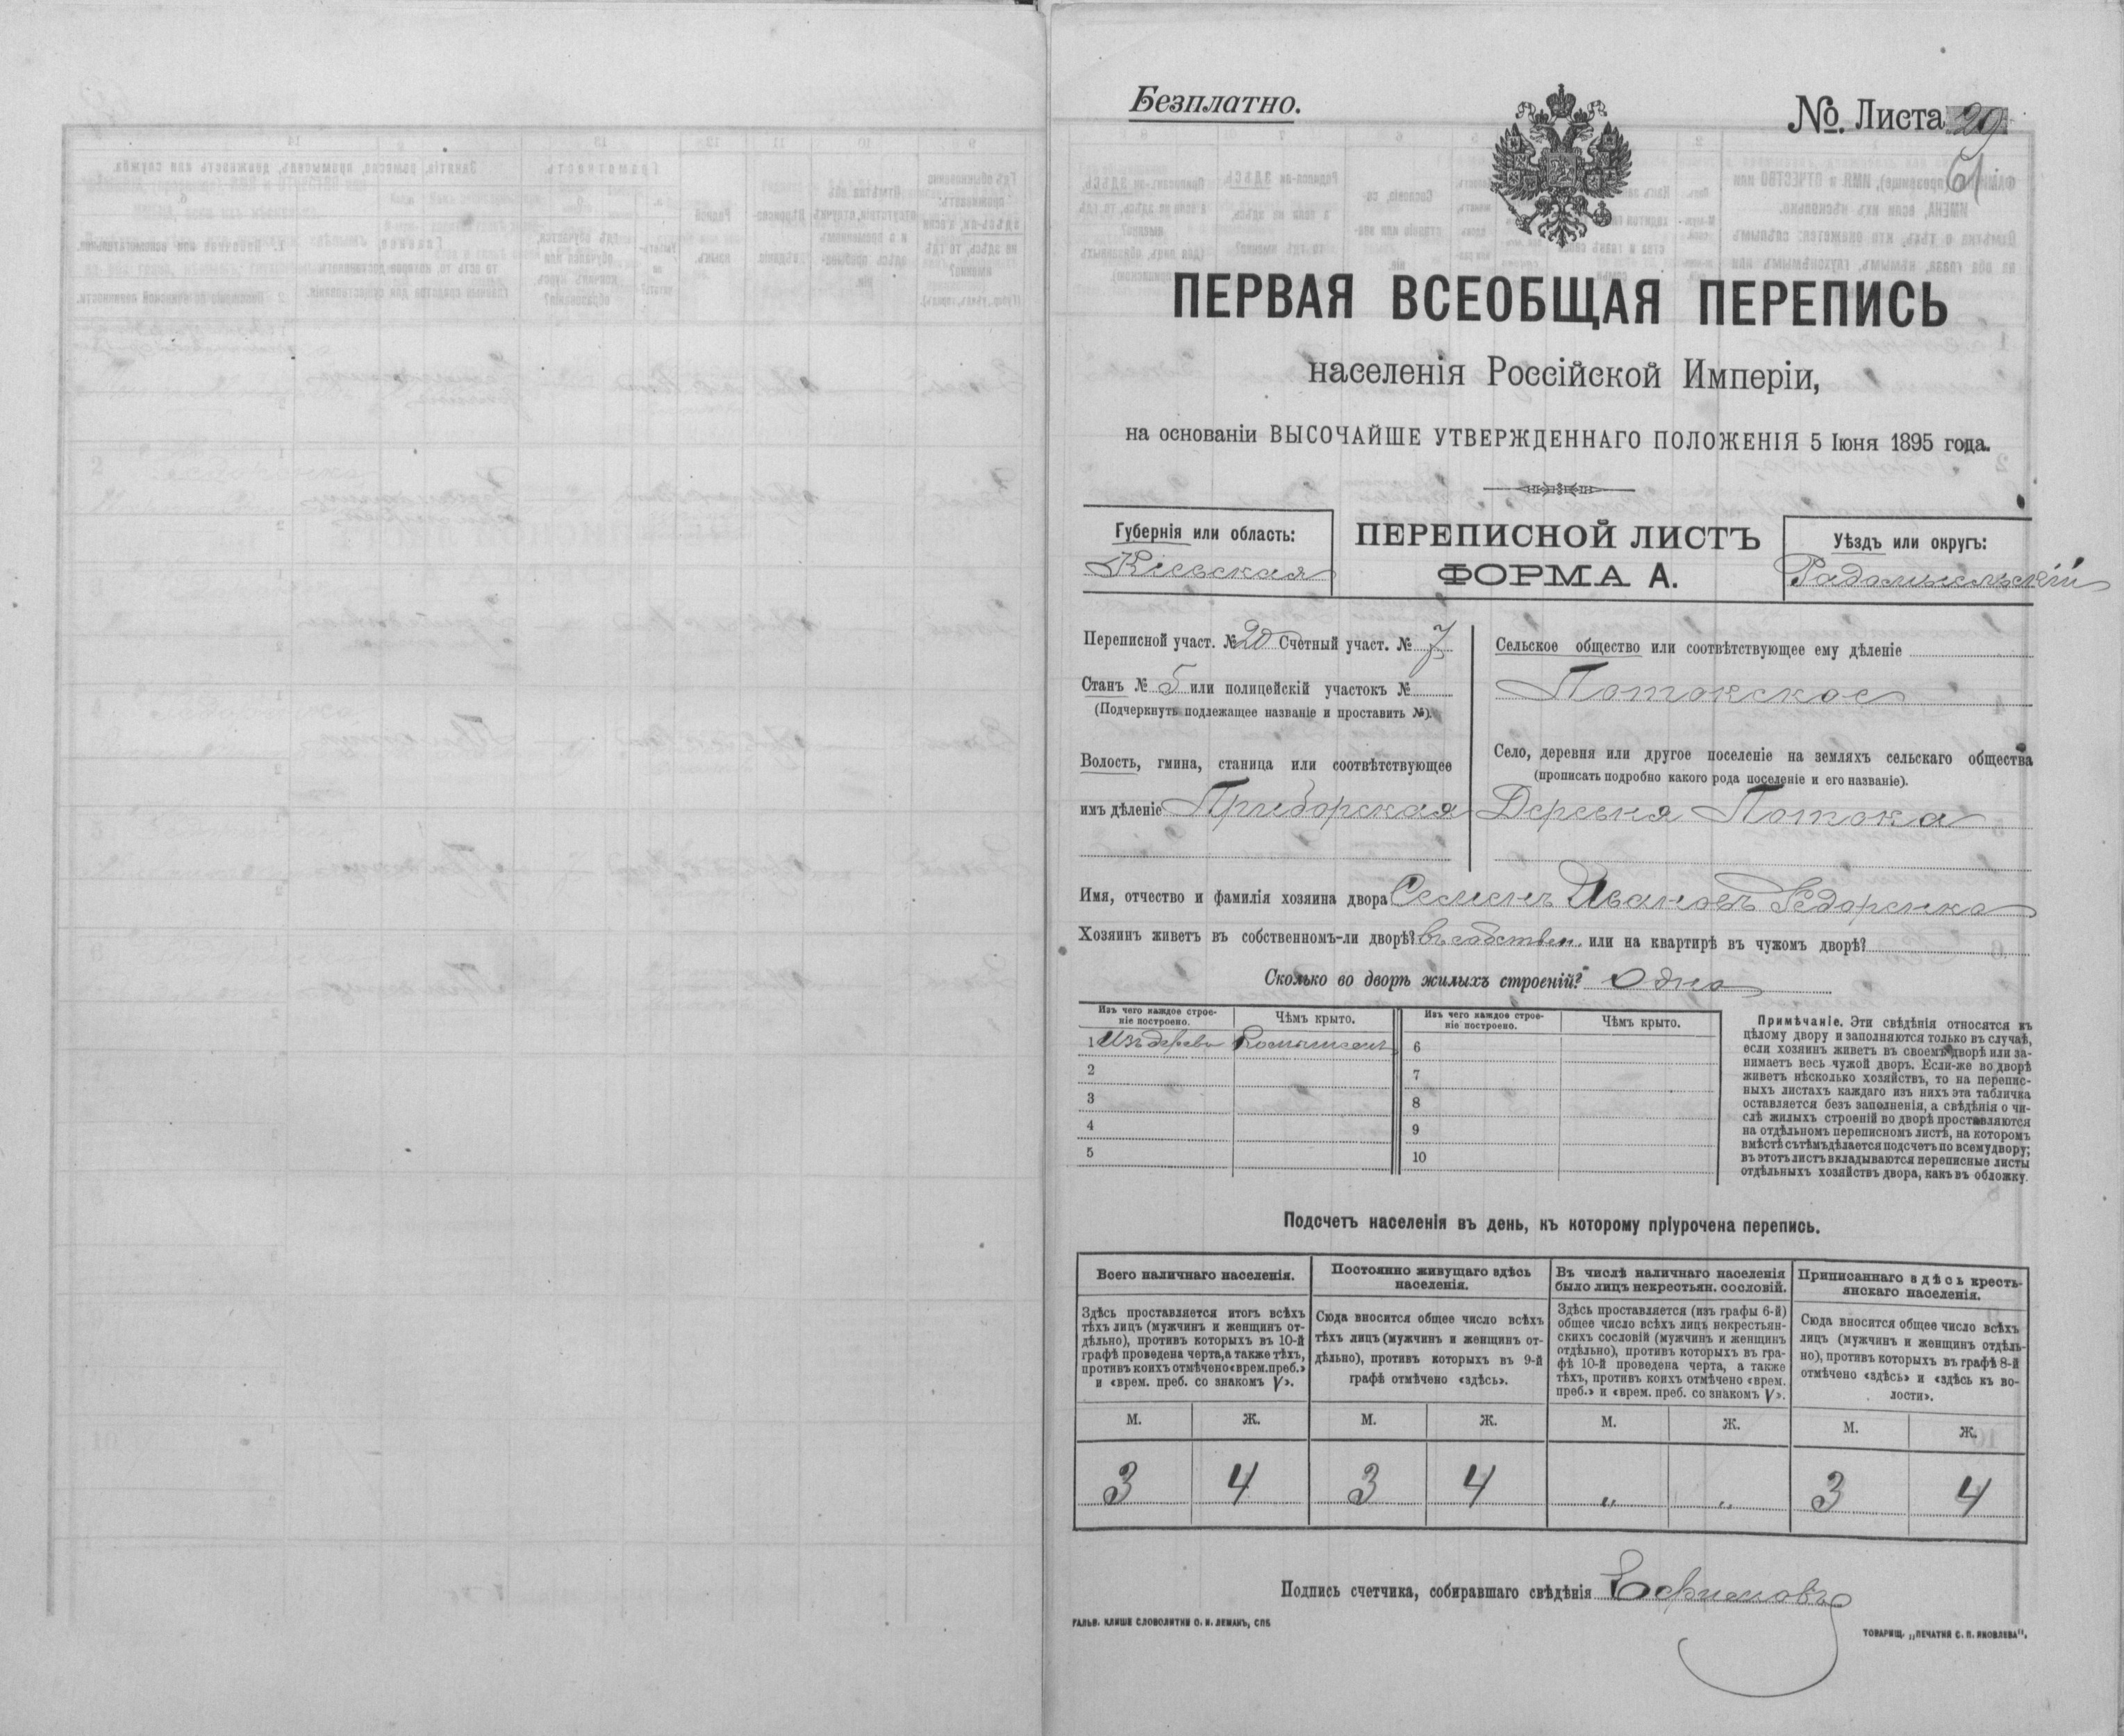 Безплатно.
№. Листа 29
61
ПЕРВАЯ ВСЕОБЩАЯ ПЕРЕПИСЬ
населенія Россійской Имперіи,
на основаніи ВЫСОЧАЙШЕ УТВЕРЖДЕННАГО ПОЛОЖЕНІЯ 5 Іюня 1895 года.
Губернія или область:
Кіевская
ПЕРЕПИСНОЙ ЛИСТЪ
ФОРМА А.
Уѣздъ или округъ:
Радомысльскій
Переписной участ. № 20 Счетный участ. № 7
Станъ № 5 или полицейскій участокъ №
(Подчеркнуть подлежащее названіе и проставить №).
Волость, гмина, станица или соотвѣтствующее
имъ дѣленіе Приборская
Сельское общество или соотвѣтствующее ему дѣленіе
Потокское
Село, деревня или другое поселеніе на земляхъ сельскаго общества
(прописать подробно какого рода поселеніе и его названіе).
Деревня Потока
Имя, отчество и фамилія хозяина двора Семенъ Ивановъ Федоренко
Хозяинъ живетъ въ собственномъ-ли дворѣ? въ собствен. или на квартирѣ въ чужомъ дворѣ?
Сколько во дворѣ жилыхъ строеній? Одно
Изъ чего каждое строе-
ніе построено.
Чѣмъ крыто.
Изъ чего каждое строе-
ніе построено.
Чѣмъ крыто.
1 Изъ дерева
6
2
7
3
8
4
9
5
10
Примѣчаніе. Эти свѣдѣнія относятся къ
цѣлому двору и заполняются только въ случаѣ,
если хозяинъ живетъ въ своемъ дворѣ или за-
нимаетъ весь чужой дворъ. Если-же во дворѣ
живетъ нѣсколько хозяйствъ, то на перепис-
ныхъ листахъ каждаго изъ нихъ эта табличка
оставляется безъ заполненія, а свѣдѣнія о чи-
слѣ жилыхъ строеній во дворѣ проставляются
на отдѣльномъ переписномъ листѣ, на которомъ
вмѣстѣ съ тѣмъ дѣлается подсчетъ по всему двору;
въ этотъ листъ вкладываются переписные листы
отдѣльныхъ хозяйствъ двора, какъ въ обложку.
Подсчетъ населенія въ день, къ которому пріурочена перепись.
Всего наличнаго населенія.
Здѣсь проставляется итогъ всѣхъ
тѣхъ лицъ (мужчинъ и женщинъ от-
дѣльно), противъ которыхъ въ 10-й
графѣ проведена черта, а также тѣхъ,
противъ коихъ отмѣчено «врем. преб.»
и «врем. преб. со знакомъ V».
Постоянно живущаго здѣсь
населенія.
Сюда вносится общее число всѣхъ
тѣхъ лицъ (мужчинъ и женщинъ от-
дѣльно), противъ которыхъ въ 9-й
графѣ отмѣчено «здѣсь».
Въ числѣ наличнаго населенія
было лицъ некрестьян. сословій.
Здѣсь проставляется (изъ графы 6-й)
общее число всѣхъ лицъ некрестьян-
скихъ сословій (мужчинъ и женщинъ
отдѣльно), противъ которыхъ въ гра-
фѣ 10-й проведена черта, а также
тѣхъ, противъ коихъ отмѣчено «врем.
преб.» и «врем. преб. со знакомъ V».
Приписаннаго здѣсь кресть-
янскаго населенія.
Сюда вносится общее число всѣхъ
лицъ (мужчинъ и женщинъ отдѣль-
но), противъ которыхъ въ графѣ 8-й
отмѣчено «здѣсь» и «здѣсь къ во-
лости».
М. Ж. М. Ж. М. Ж. М. Ж.
3 4 3 4 „ „ 3 4
Подпись счетчика, собиравшаго свѣдѣнія Ефимовъ
ГАЛЬВ. КЛИШЕ СЛОВОЛИТНИ О. И. ЛЕМАНЪ, СПБ
ТОВАРИЩ. „ПЕЧАТНЯ С. П. ЯКОВЛЕВА".